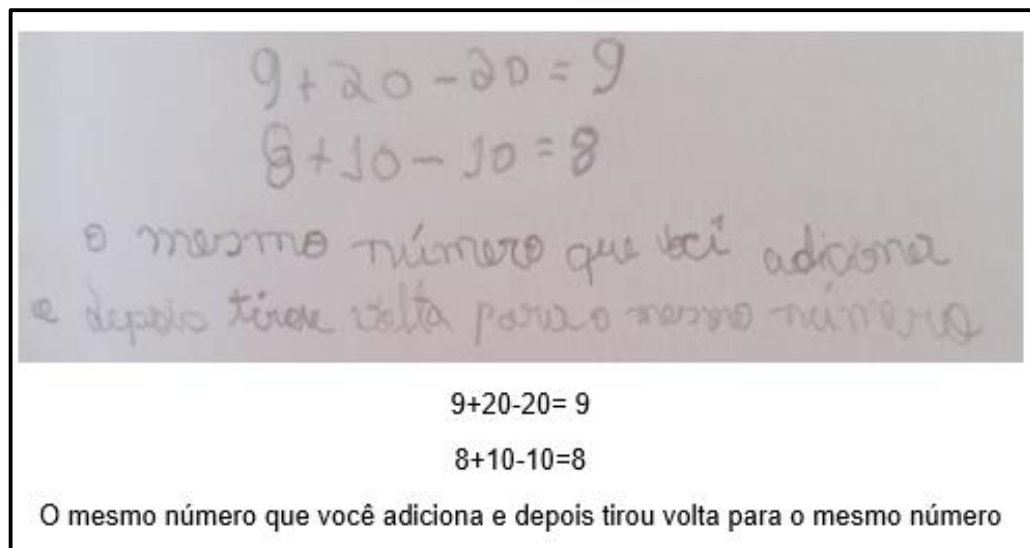 9+20-20=9
8+10-10=8
o mesmo número que você adiciona
e depois tirou volta para o mesmo número
9+20-20= 9
8+10-10=8
O mesmo número que você adiciona e depois tirou volta para o mesmo número